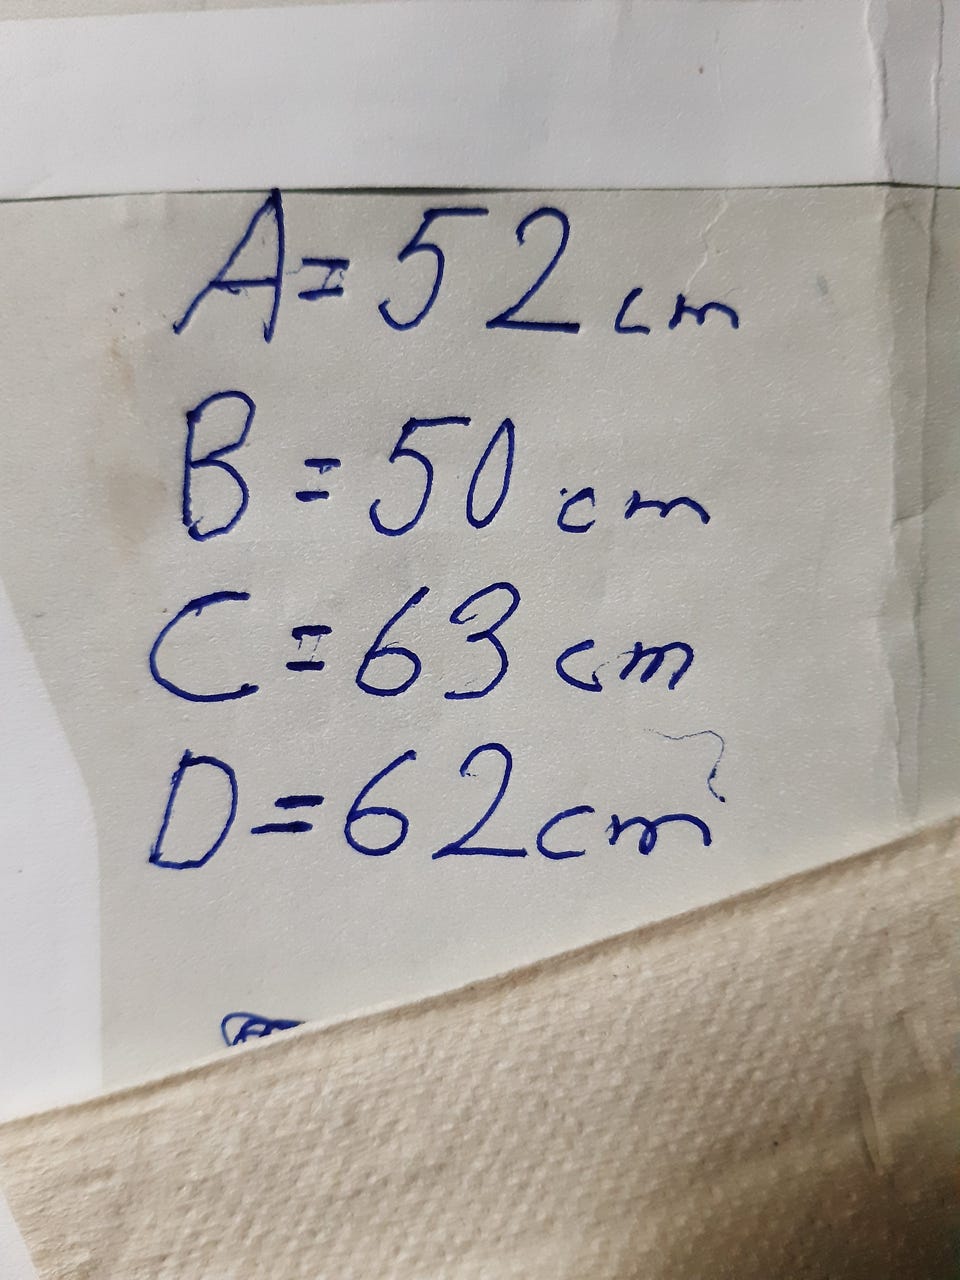 A = 52 cm
B = 50 cm
C = 63 cm
D = 62 cm